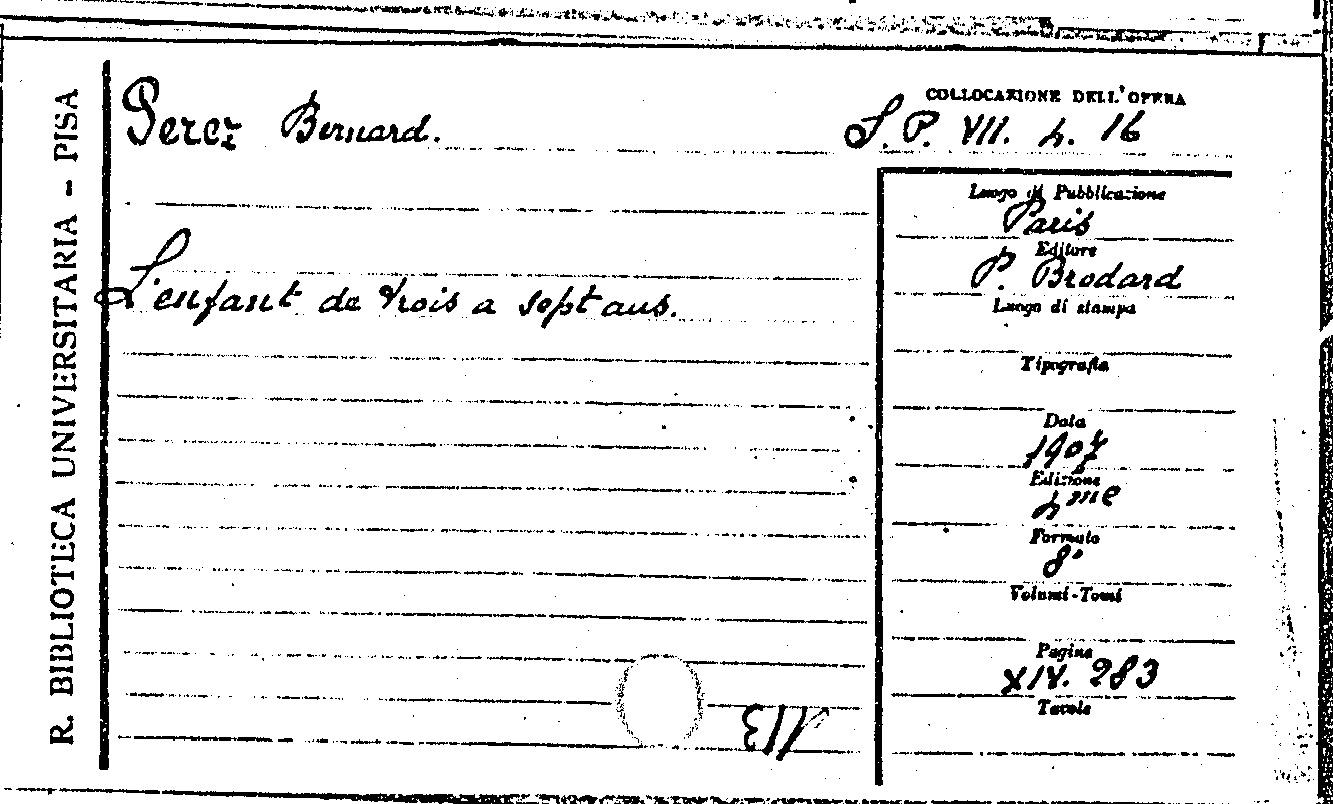 R. BIBLIOTECA UNIVERSITARIA - PISA
Perez Bernard.
COLLOCAZIONE DELL'OPERA
S. P. VII. 4. 16
Luogo di Pubblicazione
Paris
Editore
P. Brodard
Luogo di stampa
Tipografia
Data
1907
Edizione
4me
Formato
8°
Volumi-Tomi
Pagine
XIV. 283
Tavole
L'enfant de trois a sept ans.